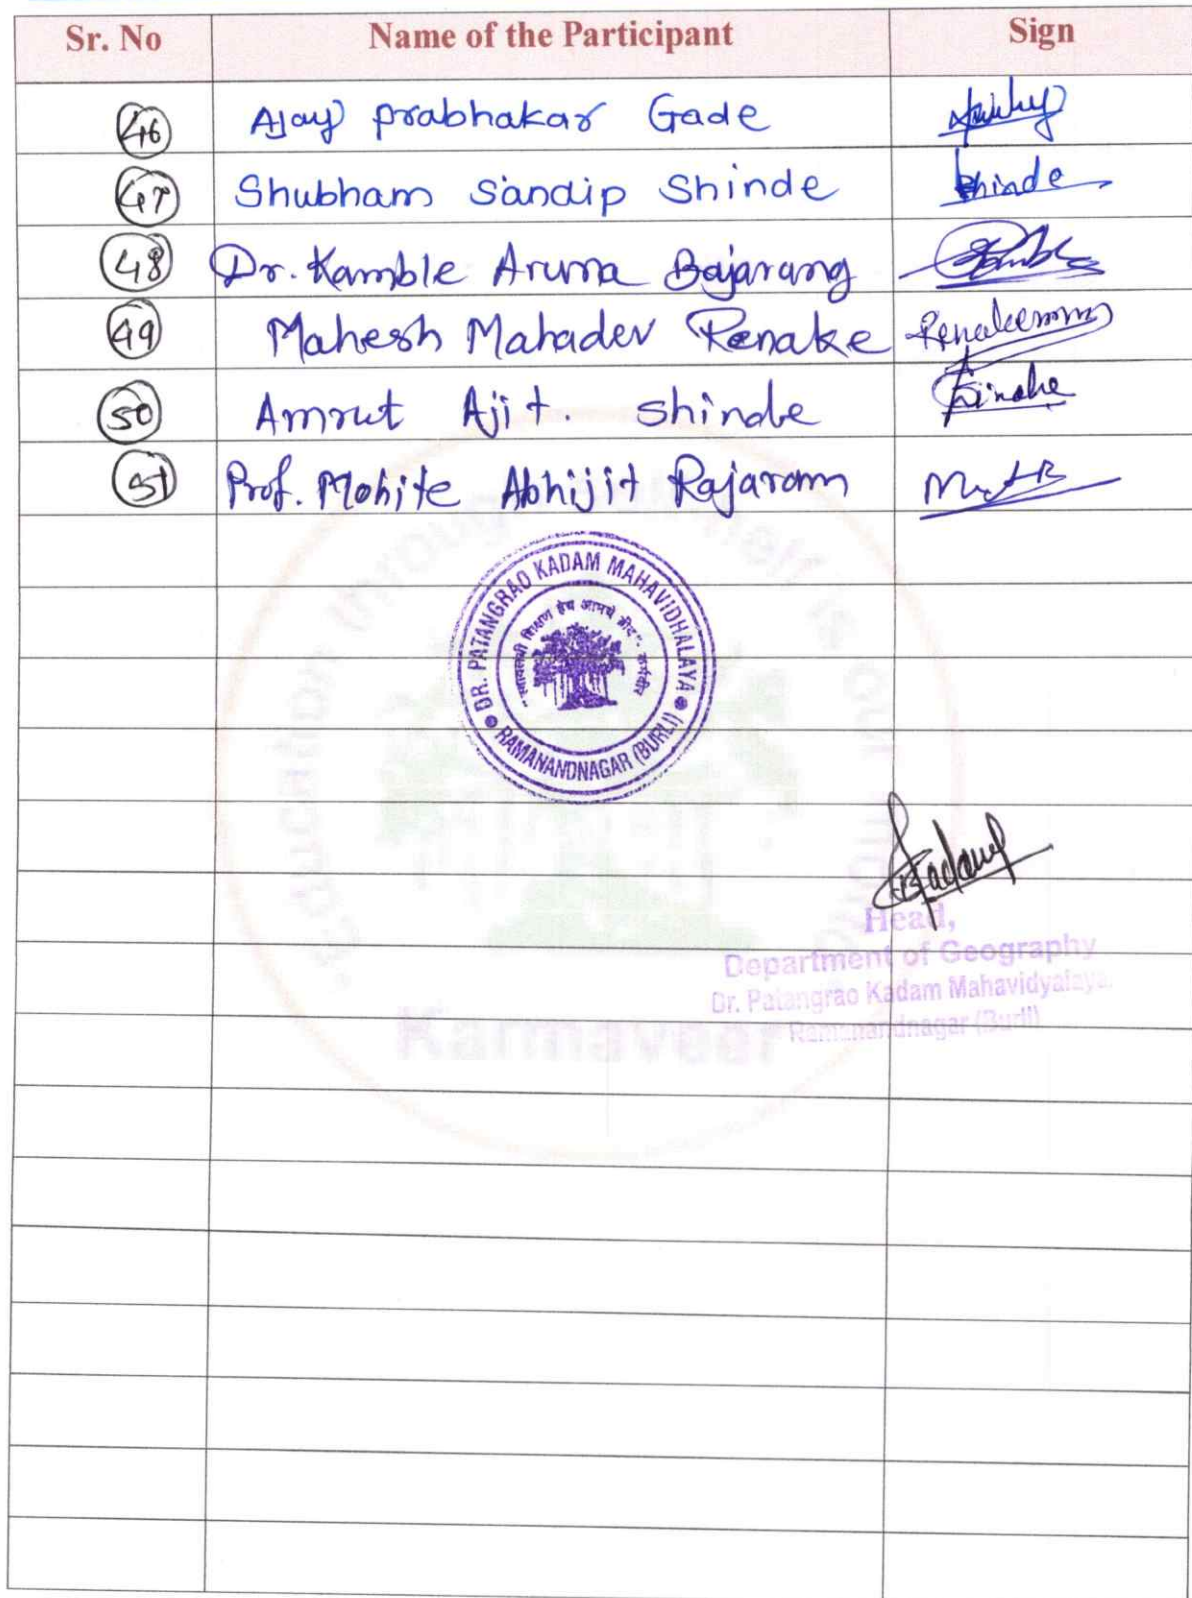 Sr. No Name of the Participant Sign
46 Ajay prabhakar Gade
47 Shubham Sandip Shinde Shinde
48 Dr. Kamble Aruna Bajarang
49 Mahesh Mahadev Renake
50 Amrut Ajit. Shinde
51 Prof. Mohite Abhijit Rajaram
DR. PATANGRAO KADAM MAHAVIDHALAYA
RAMANANDNAGAR (BURLI)
Head,
Department of Geography
Dr. Patangrao Kadam Mahavidyalaya,
Ramanandnagar (Burli)
Karmaveer